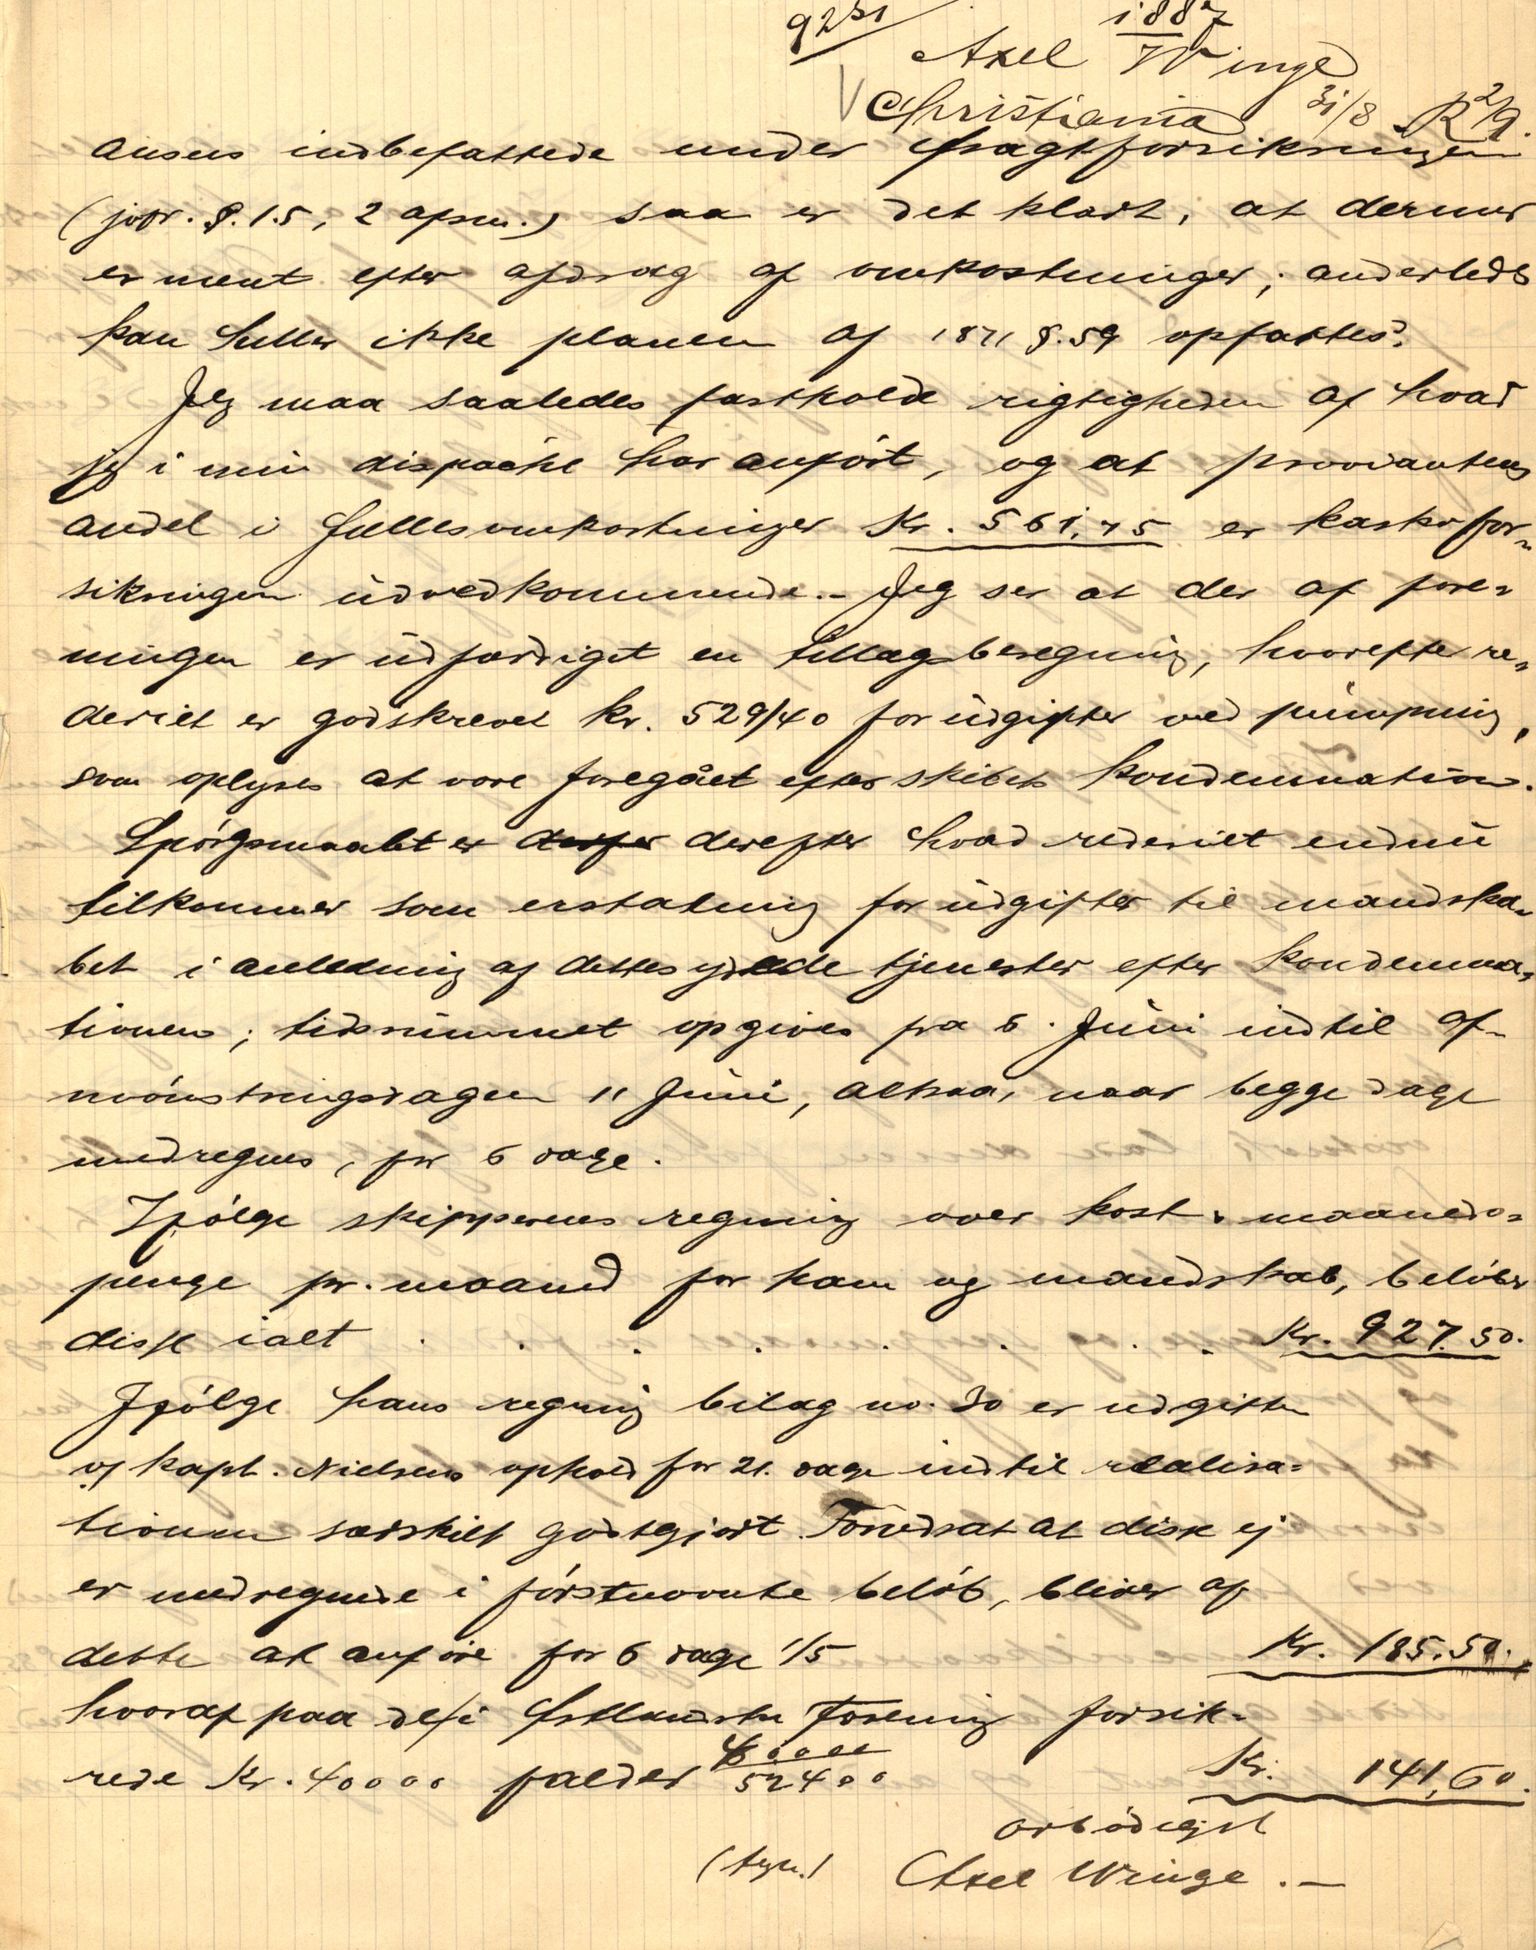 1887
Axel Winge
Christiania 31/8
ansees indbefattede under fragtforsikringen
(jvfr. §. 15, 2 afsn.) saa er det klart, at dermed
er ment efter afdrag af omkostninger; anderleds
kan heller ikke planen af 1871 §. 59 opfattes.
Jeg maa saaledes fastholde rigtigheden af hvad
jeg i min dispache har anført, og at proviantens
andel i fællesomkostninger Kr. 561,75 er kaskofor-
sikringen uvedkommende. - Jeg ser at der af fore-
ningen er udfærdiget en tillægsberegning, hvorefter re-
deriet er godskrevet kr. 529/40 for udgifter ved pumpning,
som oplyses at være foregået efter skibets kondemnation.
Spørgsmaalet er derefter hvad rederiet endnu
tilkommer som erstatning for udgifter til mandska-
bet i anledning af dettes ydede tjenester efter kondemna-
tionen; tidsrummet opgives fra 6. Juni indtil af-
mønstringsdagen 11 Juni, altsaa, naar begge dage
medregnes, for 6 dage.
Ifølge skipperens regning over kost & maaneds-
penge pr. maaned for ham og mandskab, beløber
disse ialt . . . . . . . Kr. 927.50.
Ifølge hans regning bilag no. 30 er udgiften
af kapt. Nielsens ophold for 21. dage indtil realisa-
tionen særskilt godtgjort. Forudsat at disse ej
er medregnede i førstnævnte beløb, bliver af
dette at anføre for 6 dage 1/5 Kr. 185.50.
hvoraf paa de i Østlandske Forening forsik-
rede Kr. 40000 falder 40000/52400 Kr. 141,60.
ærbødigst
(sign.) Axel Winge. -